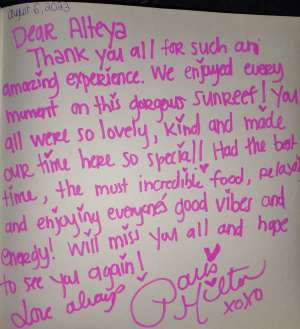 august 6, 2023
Dear Alteya
Thank you all for such an
amazing experience. We enjoyed every
moment on this gorgeous sunreef! You
all were so lovely, kind and made
our time here so special! Had the best
time, the most incredible food, relaxing
and enjoying everyone's good vibes and
energy! Will miss you all and hope
to see you again!
Love always
Paris
Hilton
xoxo